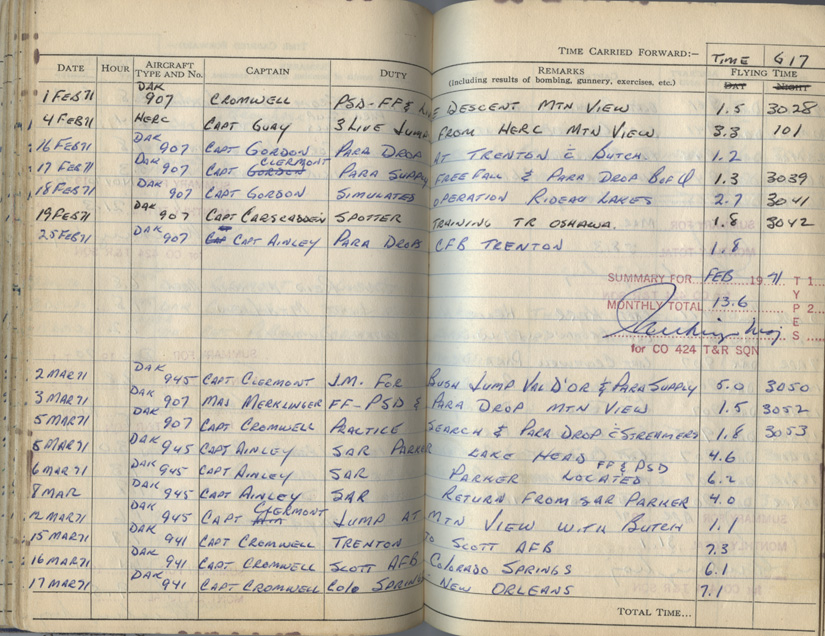 TIME CARRIED FORWARD:— TIME 617
DATE HOUR AIRCRAFT TYPE AND No. CAPTAIN DUTY REMARKS (including results of bombing, gunnery, exercises, etc.) FLYING TIME DAY NIGHT
1 FEB 71 DAK 907 CROMWELL PSD-FF & LINE DESCENT MTN VIEW 1.5 3028
4 FEB 71 HERC CAPT GUAY 3 LIVE JUMP FROM HERC MTN VIEW 3.3 101
16 FEB 71 DAK 907 CAPT GORDON PARA DROP AT TRENTON C̄ BUTCH 1.2
17 FEB 71 DAK 907 CAPT GORDON CLERMONT PARA SUPPLY FREEFALL & PARA DROP B of Q 1.3 3039
18 FEB 71 DAK 907 CAPT GORDON SIMULATED OPERATION RIDEAU LAKES 2.7 3041
19 FEB 71 DAK 907 CAPT CARSCADDEN SPOTTER TRAINING TR OSHAWA. 1.8 3042
25 FEB 71 DAK 907 CAPT AINLEY PARA DROPS CFB TRENTON 1.8
SUMMARY FOR FEB 1971 T 1...
MONTHLY TOTAL 13.6 Y
P 2...
E
S
for CO 424 T&R SQN
2 MAR 71 DAK 945 CAPT CLERMONT J.M. FOR BUSH JUMP VAL D'OR & PARA SUPPLY 5.0 3050
3 MAR 71 DAK 907 MAJ MERKLINGER FF-PSD & PARA DROP MTN VIEW 1.5 3052
5 MAR 71 DAK 907 CAPT CROMWELL PRACTICE SEARCH & PARA DROP C̄ STREAMERS 1.8 3053
5 MAR 71 DAK 945 CAPT AINLEY SAR PARKER LAKE HEAD 4.6
6 MAR 71 DAK 945 CAPT AINLEY SAR PARKER LOCATED FF & PSD 6.2
8 MAR DAK 945 CAPT AINLEY SAR RETURN FROM SAR PARKER 4.0
12 MAR 71 DAK 945 CAPT CLERMONT JUMP AT MTN VIEW WITH BUTCH 1.1
15 MAR 71 DAK 941 CAPT CROMWELL TRENTON TO SCOTT AFB 7.3
16 MAR 71 DAK 941 CAPT CROMWELL SCOTT AFB COLORADO SPRINGS 6.1
17 MAR 71 DAK 941 CAPT CROMWELL COLO SPRINGS NEW ORLEANS 7.1
TOTAL TIME...